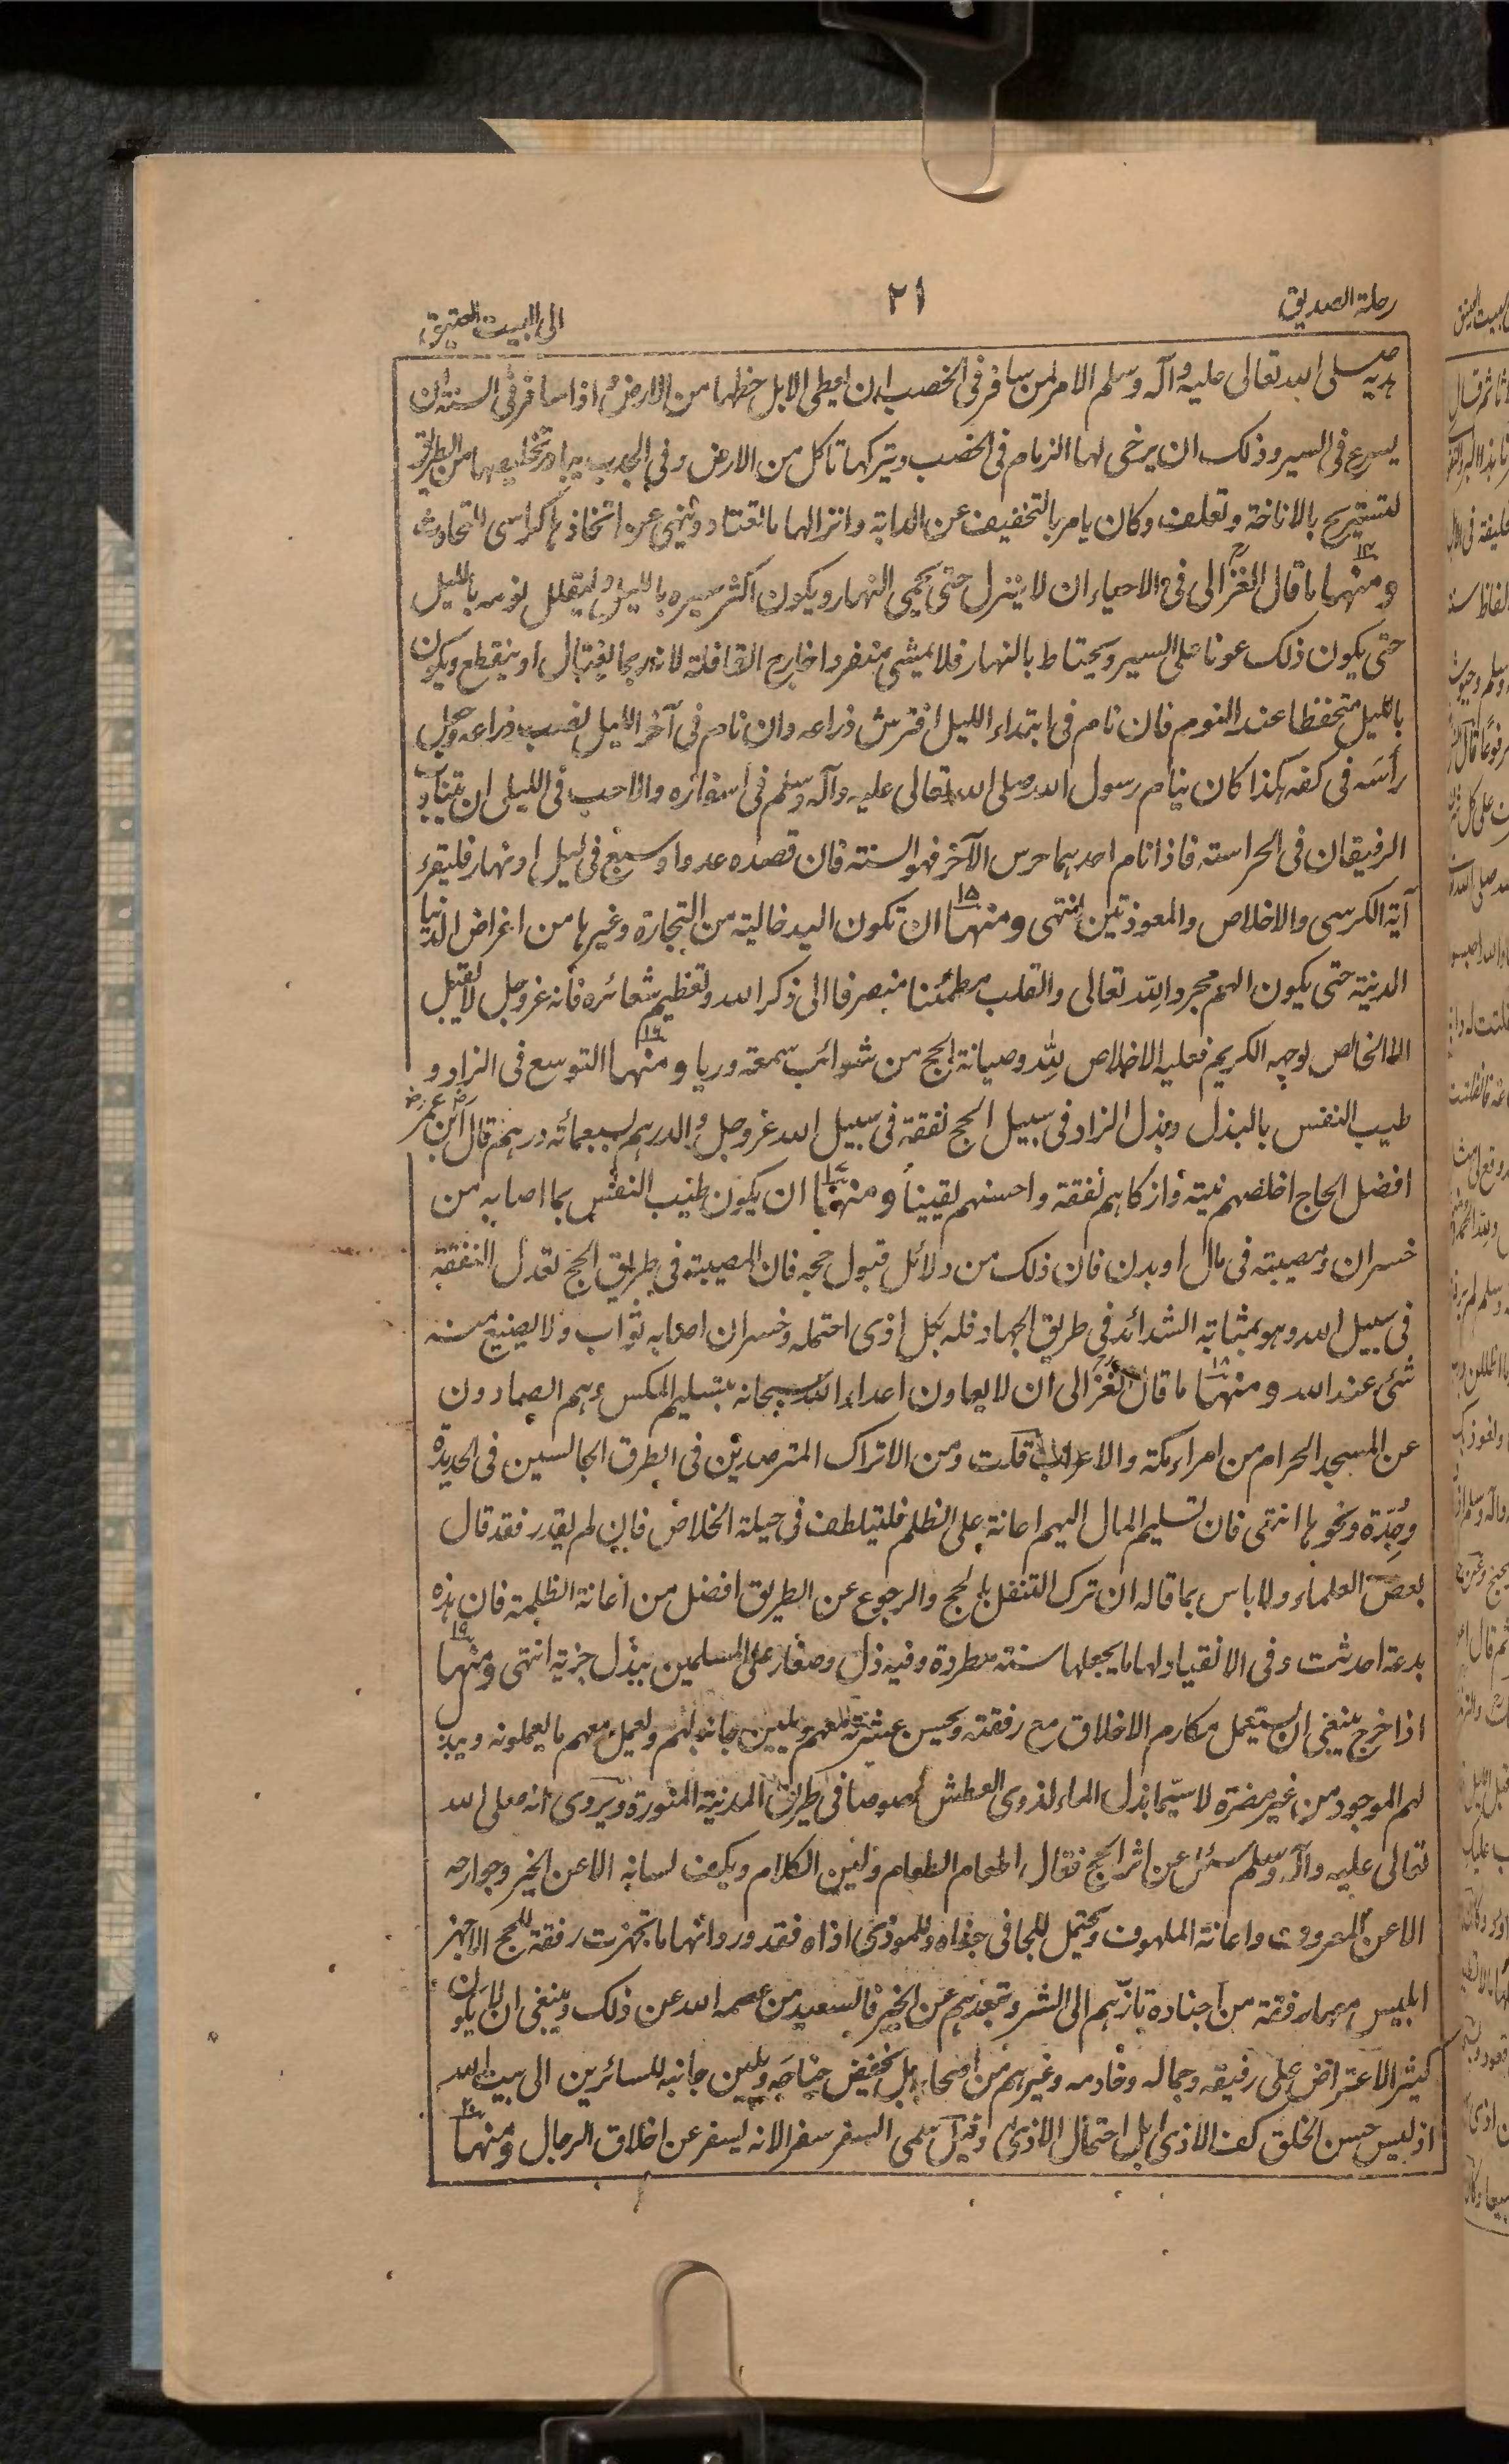 رحلة الصديق
٢١
الى البيت العتيق
هديه صلى الله تعالى عليه وآله وسلم الامر لمن سافر فى الخصب ان يعطى الابل حظها من الارض واذا سافر فى السنة ان
يسرع فى السير وذلك ان يرخى لها الزمام فى الخصب ويتركها تاكل من الارض وفى الجدب يبادر تخليصها من الطريق
لتستريح بالاناخة وتعلف وكان يامر بالتخفيف عن الدابة وانزالها ما تعتاد وينهى عن اتخاذها كراسى للتحادث
ومنها ما قال الغزالى فى الاحياء ان لا ينزل حتى يحمى النهار ويكون اكثر سيره بالليل وليقلل نومه بالليل
حتى يكون ذلك عونا على السير ويحتاط بالنهار فلا يمشى منفردا خارج القافلة لانه ربما يغتال او ينقطع ويكون
بالليل متحفظا عند النوم فان نام فى ابتداء الليل افترش ذراعه وان نام فى آخر الليل نصب ذراعه وجعل
رأسه فى كفه هكذا كان ينام رسول الله صلى الله تعالى عليه وآله وسلم فى اسفاره والاحب فى الليل ان يتناوب
الرفيقان فى الحراسة فاذا نام احدهما حرس الآخر فهو السنة فان قصده عدو او سبع فى ليل او نهار فليقرء
آية الكرسى والاخلاص والمعوذتين انتهى ومنها ١٥ ان تكون اليد خالية من التجارة وغيرها من اغراض الدنيا
الدنية حتى يكون الهم مجردا لله تعالى والقلب مطمئنا منصرفا الى ذكر الله وتعظيم شعائره فانه عز وجل لا يقبل
الا الخالص لوجهه الكريم فعليه الاخلاص لله وصيانة الحج من شوائب سمعة وريا ومنها ١٦ التوسع فى الزاد و
طيب النفس بالبذل وبذل الزاد فى سبيل الحج نفقة فى سبيل الله عز وجل والدرهم بسبعمائة درهم قال ابن عمر رض
افضل الحاج اخلصهم نية وازكاهم نفقة واحسنهم يقينا ومنها ١٧ ان يكون طيب النفس بما اصابه من
خسران ومصيبة فى مال او بدن فان ذلك من دلائل قبول حجه فان المصيبة فى طريق الحج تعدل النفقة
فى سبيل الله وهو بمثابة الشدائد فى طريق الجهاد فله بكل اذى احتمله وخسران اصابه ثواب ولا يضيع منه
شئ عند الله ومنها ١٨ ما قال الغزالى ان لا يعاون اعداء الله سبحانه بتسليم المكس وهم الصادون
عن المسجد الحرام من امراء مكة والاعراب قلت ومن الاتراك المترصدين فى الطرق الجالسين فى الحديدة
وجدة ونحوها انتهى فان تسليم المال اليهم اعانة على الظلم فليتلطف فى حيلة الخلاص فان لم يقدر فقد قال
بعض العلماء ولا باس بما قاله ان ترك التنفل بالحج والرجوع عن الطريق افضل من اعانة الظلمة فان هذه
بدعة احدثت وفى الانقياد لها ما يجعلها سنة مطردة وفيه ذل وصغار على المسلمين ببذل جزية انتهى ومنها ١٩
اذا خرج ينبغى ان يستعمل مكارم الاخلاق مع رفقته ويحسن عشرته معهم ويلين جانبه لهم ويعمل معهم ما يعملونه ويبذ
لهم الموجود من غير مضرة لا سيما بذل الماء لذوى العطش خصوصا فى طريق المدينة المنورة ويروى انه صلى الله
تعالى عليه وآله وسلم سئل عن اثر الحج فقال اطعام الطعام ولين الكلام ويكف لسانه الا عن الخير وجوارحه
الا عن المعروف واعانة الملهوف ويحتمل للجافى جفاه وللموذى اذاه فقد ورد انها ما تجهزت رفقة للحج الا جهز
ابليس معها رفقة من اجناده تازهم الى الشر وتبعدهم عن الخير فالسعيد من عصمه الله عن ذلك وينبغى ان لا يكون
كثير الاعتراض على رفيقه وجماله وخادمه وغيرهم من اصحابه بل يخفض جناحه ويلين جانبه للسائرين الى بيت الله
اذ ليس حسن الخلق كف الاذى بل احتمال الاذى وقيل سمى السفر سفرا لانه يسفر عن اخلاق الرجال ومنها ٢٠